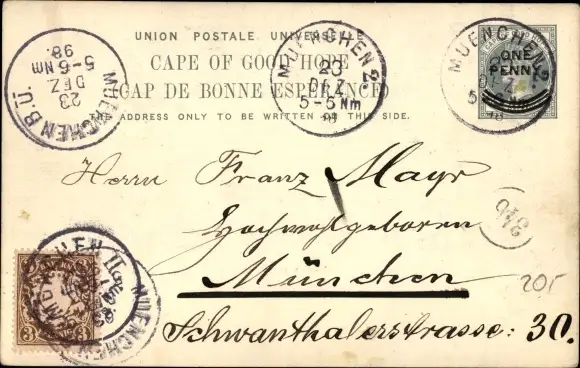 UNION POSTALE UNIVERSELLE
CAPE OF GOOD HOPE
(CAP DE BONNE ESPÉRANCE)
ADDRESS ONLY TO BE WRITTEN ON THIS SIDE.
ONE
PENNY
MUENCHEN B.U.
23
DEZ
5-6 Nm
98.
MUENCHEN 2
23
DEZ
5-6 Nm
98
MUENCHEN 2
DEZ
Herrn Franz Mayr
Hochwohlgeboren
München
Schwanthalerstrasse: 30.
20.-
3
MUENCHEN II